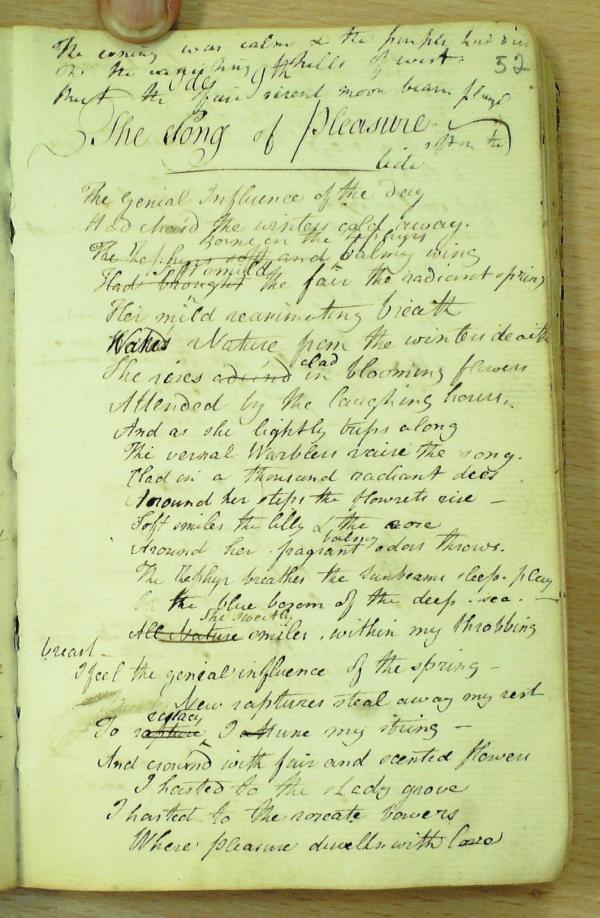 The evening was calm & the purple had
52
the vanishing hills of west
But the fair risend moon beam playd
The Song of Pleasure
on the
tide
The Genial Influence of the day
Had chasd the winters cold away.
borne on the Zephyrs
The Zephyrs soft and balmy wing
soft & mild
Had brought the fair the radiant spring
Her mild reanimating breath
Wakes Nature from the winters death
clad
She rises adornd in blooming flowers
Attended by the laughing hours.
And as she lightly trips along
The vernal Warblers raise the song.
Clad in a thousand radiant dies
Around her steps the flowrets rise –
Soft smiles the lilly & the rose
balmy
Around her fragrant odors throws.
The Zephyr breathes the sunbeams sleep. play
the blue bosom of the deep. sea. –
She sweetly
All Nature smiles. within my throbbing
breast –
I feel the genial influence of the spring –
New raptures steal away my rest
ecstacy
To rapture I attune my string –
And crownd with fair and scented flowers
I hasted to the shady grove
I hasted to the roseate bowers
Where pleasure dwells with love